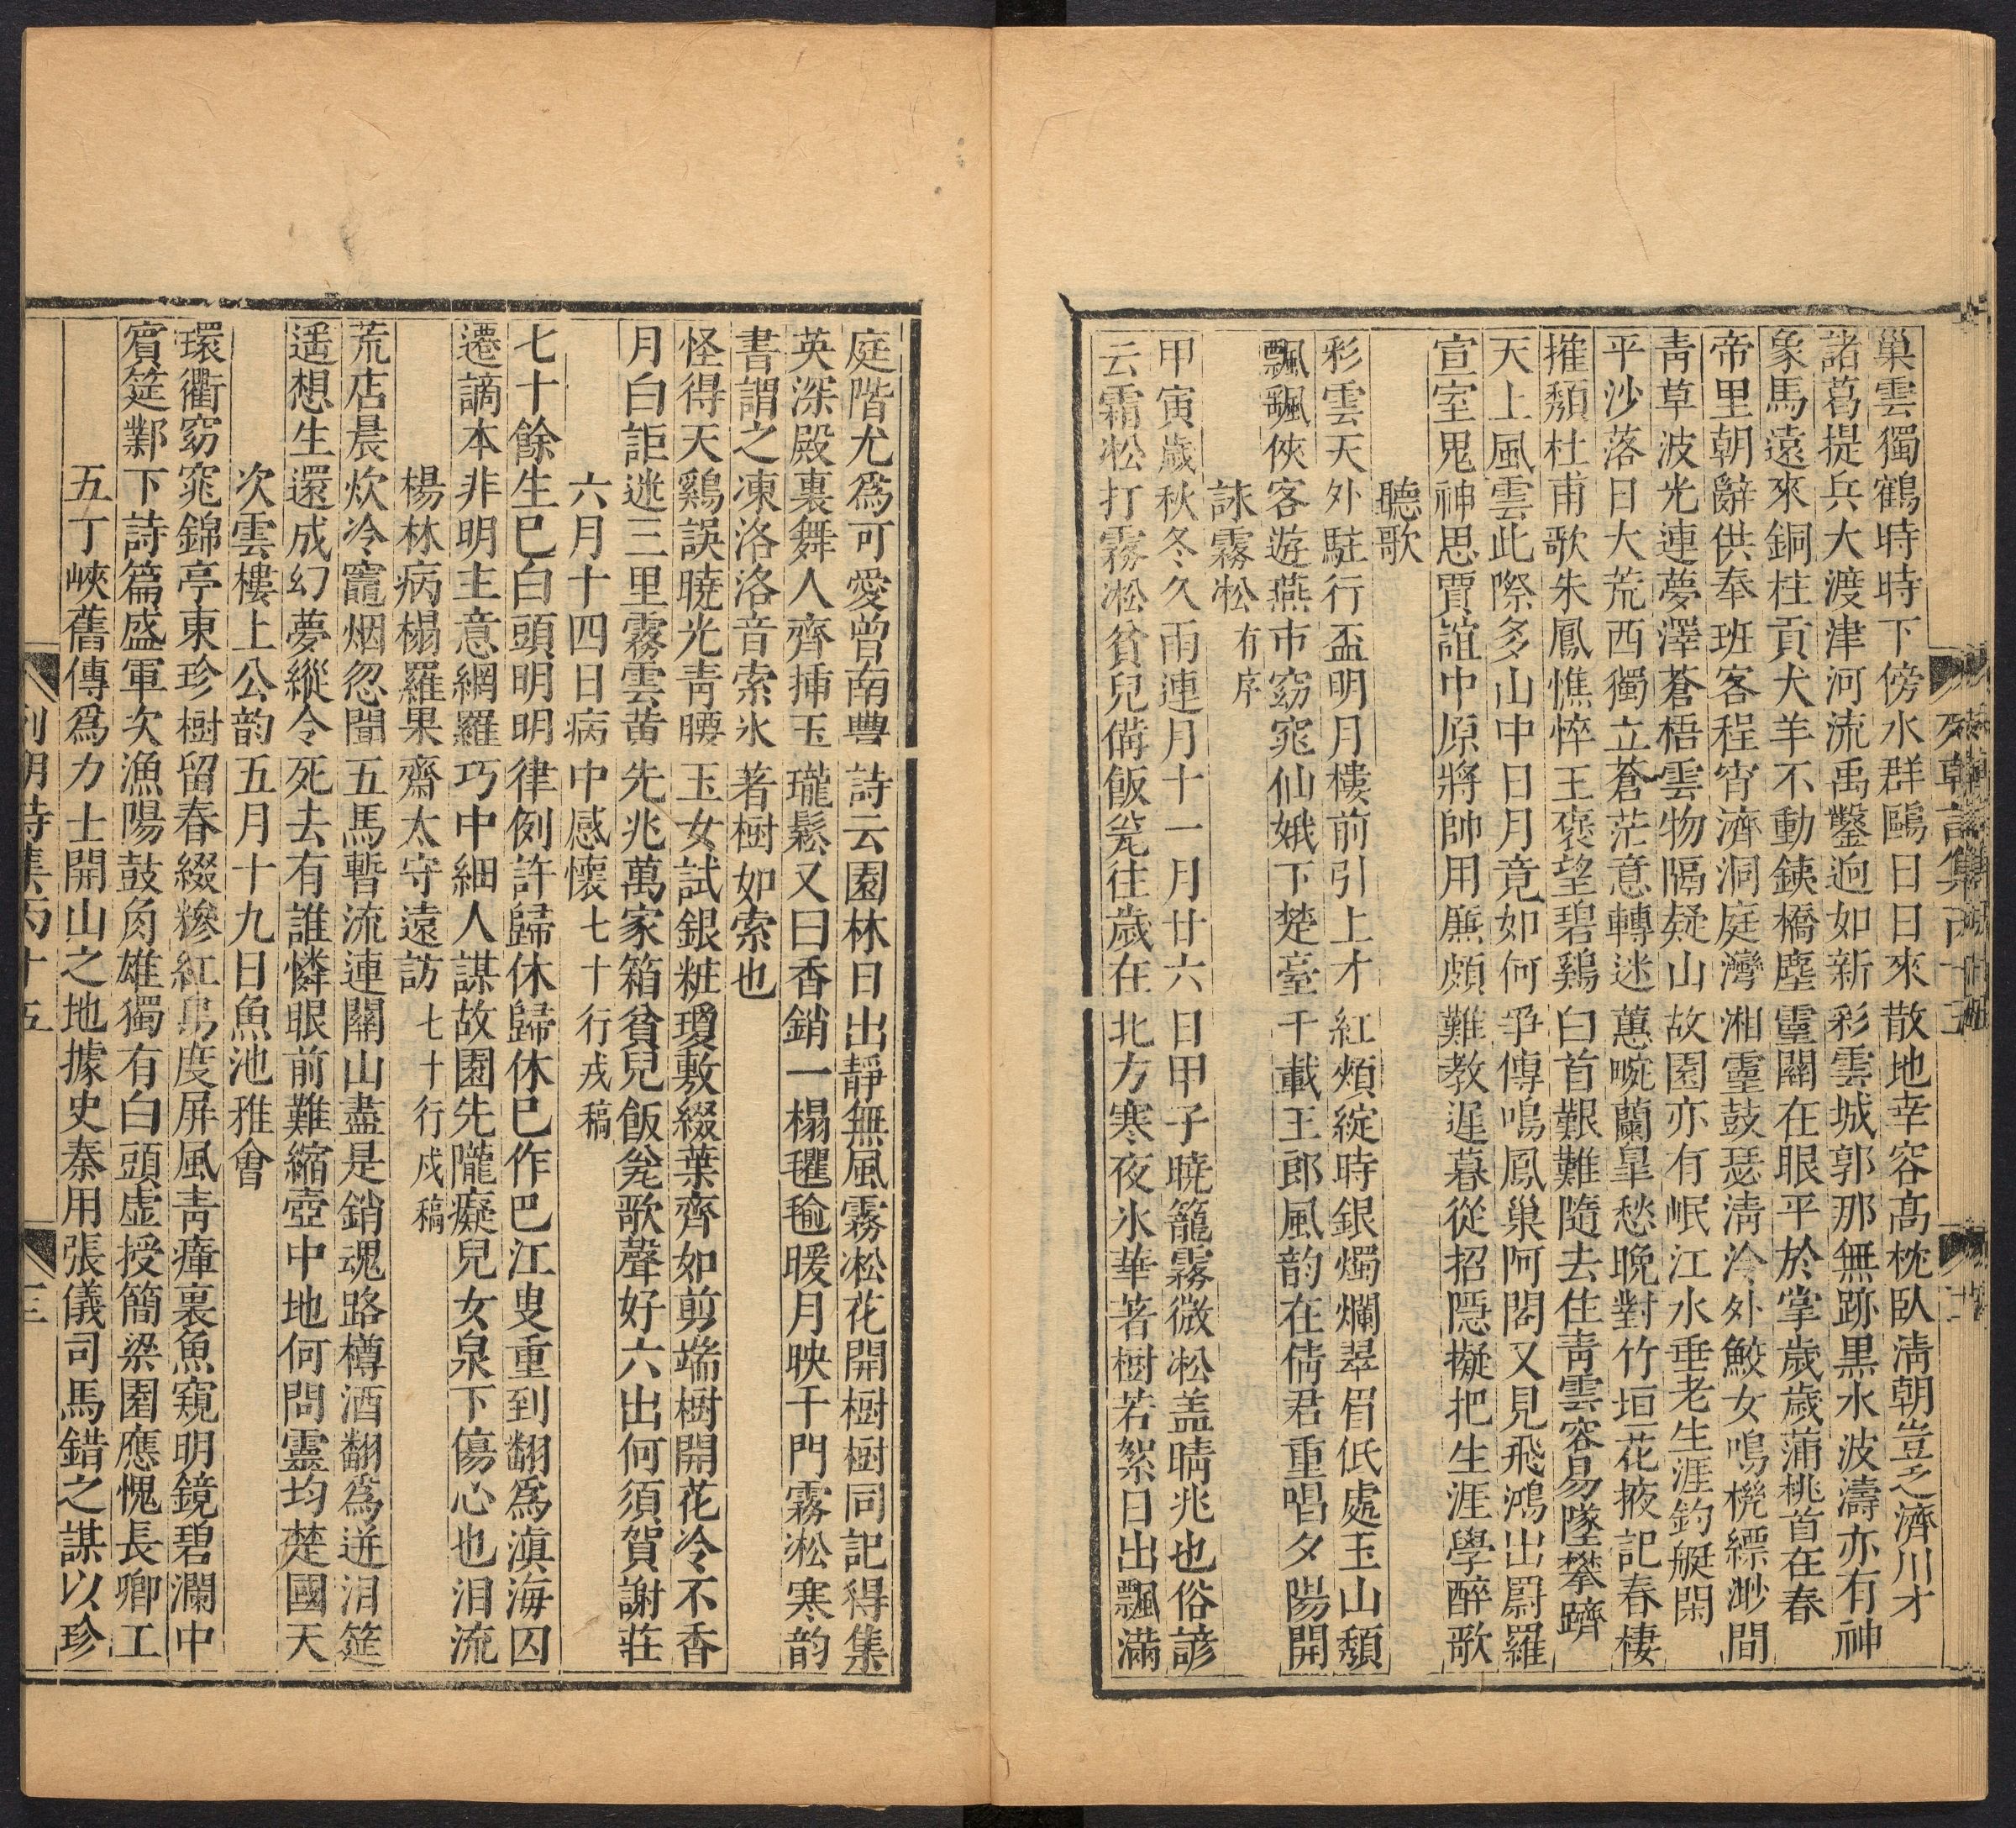 巢雲獨鶴時時下傍水群鷗日日來散地幸容高枕臥淸朝豈乏濟川才
諸葛提兵大渡津河流禹鑿逈如新彩雲城郭那無跡黒水波濤亦有神
象馬遠來銅柱貢犬羊不動鐵橋塵靈關在眼平於掌歲歲蒲桃首在春
帝里朝辭供奉班客程宵濟洞庭灣湘靈鼓瑟淸泠外鮫女鳴機縹渺間
靑草波光連夢澤蒼梧雲物隔疑山故園亦有岷江水垂老生涯釣艇閑
平沙落日大荒西獨立蒼茫意轉迷蕙畹蘭皐愁晚對竹垣花掖記春棲
摧頽杜甫歌朱鳳憔悴王褒望碧鷄白首艱難隨去住靑雲容易墜攀躋
天上風雲此際多山中日月竟如何爭傳鳴鳳巢阿閣又見飛鴻出罻羅
宣室鬼神思賈誼中原將帥用廉頗難教遲暮從招隱擬把生涯學醉歌
聽歌
彩雲天外駐行盃明月樓前引上才紅頰綻時銀燭爛翠眉低處玉山頽
飄飄俠客遊燕市窈窕仙娥下楚臺千載王郎風韵在倩君重唱夕陽開
詠霧凇有序
甲寅歲秋冬久雨連月十一月廿六日甲子曉籠霧微凇盖晴兆也俗諺
云霜凇打霧凇貧兒備飯瓮往歲在北方寒夜氷華著樹若絮日出飄滿
庭階尤爲可愛曾南豐詩云園林日出靜無風霧凇花開樹樹同記得集
英深殿裏舞人齊揷玉瓏鬆又曰香銷一榻氍毹暖月映千門霧凇寒韵
書謂之凍洛洛音索氷著樹如索也
怪得天鷄誤曉光靑腰玉女試銀粧瓊敷綴葉齊如剪端樹開花冷不香
月白詎迷三里霧雲黄先兆萬家箱貧兒飯瓮歌聲好六出何須賀謝莊
六月十四日病中感懷七十行戍稿
七十餘生已白頭明明律例許歸休歸休已作巴江叟重到翻爲滇海囚
遷謫本非明主意網羅巧中細人謀故園先隴癡兒女泉下傷心也泪流
楊林病榻羅果齋太守遠訪七十行戍稿
荒店晨炊冷竈烟忽聞五馬暫流連關山盡是銷魂路樽酒翻爲迸泪筵
遥想生還成幻夢縱令死去有誰憐眼前難縮壺中地何問靈均楚國天
次雲樓上公韵五月十九日魚池雅會
環衢窈窕錦亭東珍樹留春綴糝紅鳥度屏風靑瘴裏魚窺明鏡碧瀾中
賓筵鄴下詩篇盛軍次漁陽鼓角雄獨有白頭虛授簡梁園應愧長卿工
五丁峽舊傳爲力士開山之地據史秦用張儀司馬錯之謀以珍
列朝詩集丙十五
三